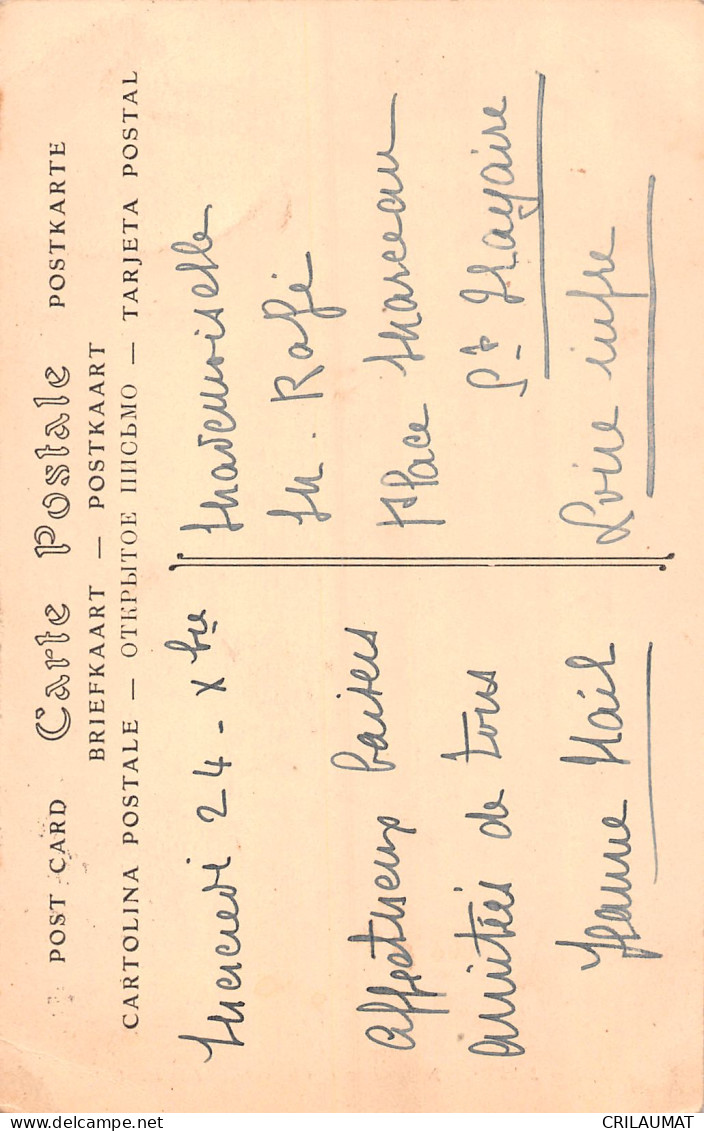 POST CARD Carte Postale POSTKARTE
BRIEFKAART — POSTKAART
CARTOLINA POSTALE — ОТКРЫТОЕ ПИСЬМО — TARJETA POSTAL
Mercredi 24 - Xbre
Affectueux baisers
amitiés de tous
Jeanne
Mademoiselle
M.
Place Marceau
St Nazaire
Loire infre
CRILAUMAT